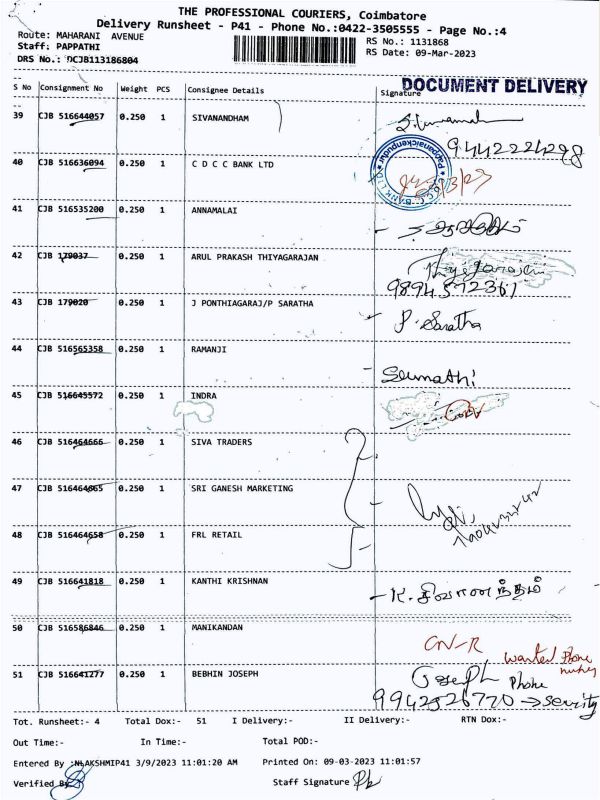 THE PROFESSIONAL COURIERS, Coimbatore
Delivery Runsheet - P41 - Phone No.:0422-3505555 - Page No.:4
Route: MAHARANI AVENUE
RS No.: 1131868
Staff: PAPPATHI
RS Date: 09-Mar-2023
DRS No.: DCJB113186804
DOCUMENT DELIVERY
S No Consignment No Weight PCS Consignee Details Signature
39 CJB 516644057 0.250 1 SIVANANDHAM
9442224298
40 CJB 516636094 0.250 1 C D C C BANK LTD
41 CJB 516535200 0.250 1 ANNAMALAI
42 CJB 179037 0.250 1 ARUL PRAKASH THIYAGARAJAN
Thiyagarajan
9894372361
43 CJB 179020 0.250 1 J PONTHIAGARAJ/P SARATHA
P. Saratha
44 CJB 516565358 0.250 1 RAMANJI
Sumathi
45 CJB 516645572 0.250 1 INDRA
46 CJB 516464666 0.250 1 SIVA TRADERS
47 CJB 516464665 0.250 1 SRI GANESH MARKETING
48 CJB 516464658 0.250 1 FRL RETAIL
49 CJB 516641818 0.250 1 KANTHI KRISHNAN
K. சிவானந்தம்
50 CJB 516586846 0.250 1 MANIKANDAN
CN-R
Wanted Phone
51 CJB 516641277 0.250 1 BEBHIN JOSEPH
Joseph Phone
9942526770 →
Tot. Runsheet:- 4 Total Dox:- 51 I Delivery:- II Delivery:- RTN Dox:-
Out Time:- In Time:- Total POD:-
Entered By :NLAKSHMIP41 3/9/2023 11:01:20 AM Printed On: 09-03-2023 11:01:57
Verified By Staff Signature